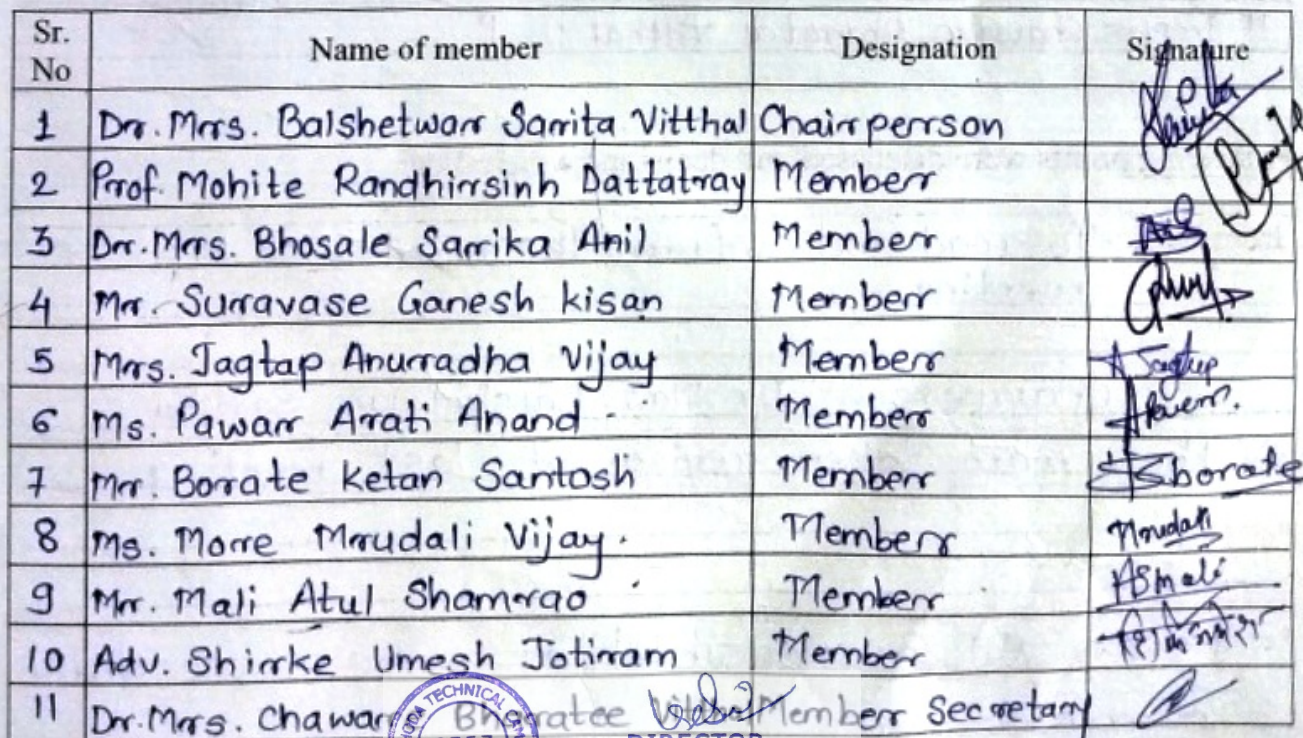 Sr. No Name of member Designation Signature
1 Dr. Mrs. Balshetwar Sarita Vitthal Chairperson
2 Prof. Mohite Randhirsinh Dattatray Member
3 Dr. Mrs. Bhosale Sarika Anil Member
4 Mr. Suravase Ganesh kisan Member
5 Mrs. Jagtap Anuradha Vijay Member A Jagtap
6 Ms. Pawar Arati Anand Member
7 Mr. Borate Ketan Santosh Member Borate
8 Ms. More Mrudali Vijay. Member Mrudali
9 Mr. Mali Atul Shamrao Member ASmali
10 Adv. Shirke Umesh Jotiram Member
11 Dr. Mrs. Chavan Bharatee Member Secretary
TECHNICAL
DIRECTOR